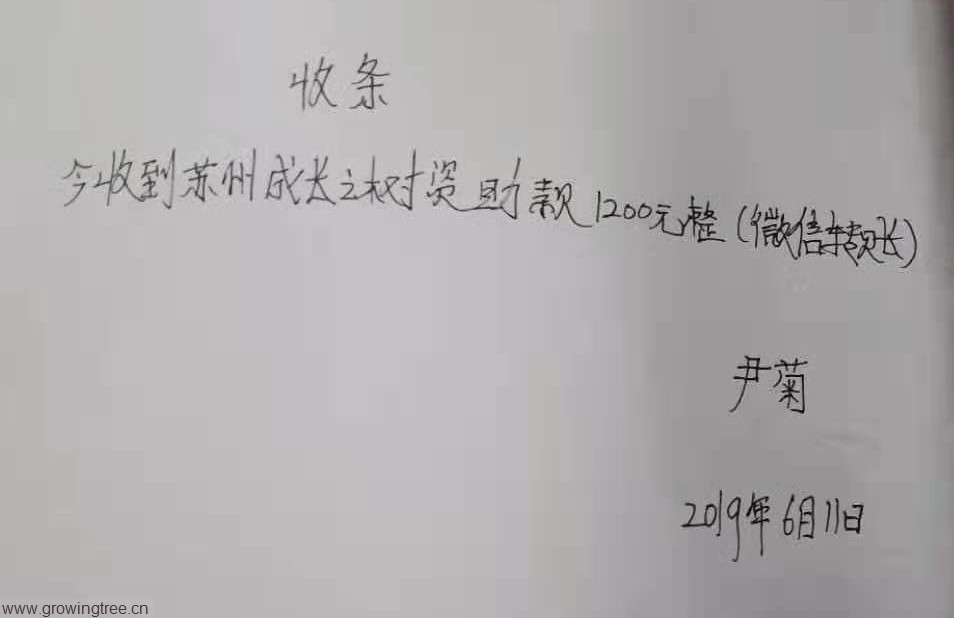 收条
今收到苏州成长之树资助款1200元整(微信转账)
尹菊
2019年6月11日
www.growingtree.cn